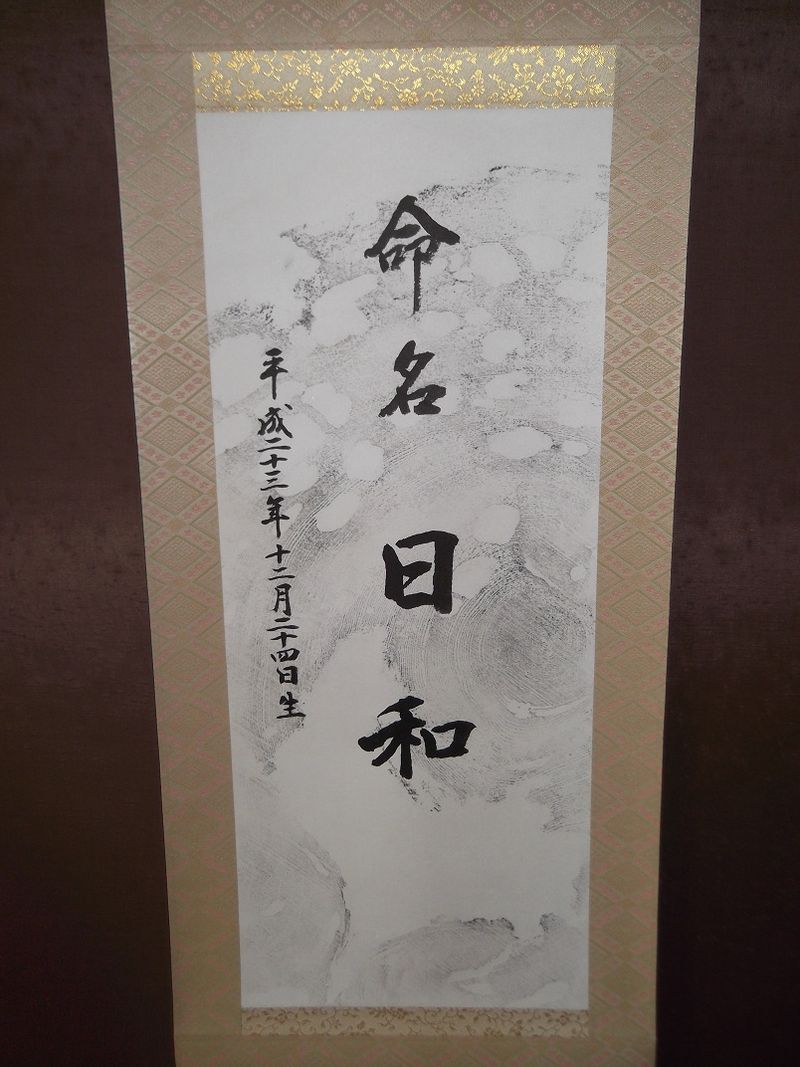 命名 日和
平成二十三年十二月二十四日生